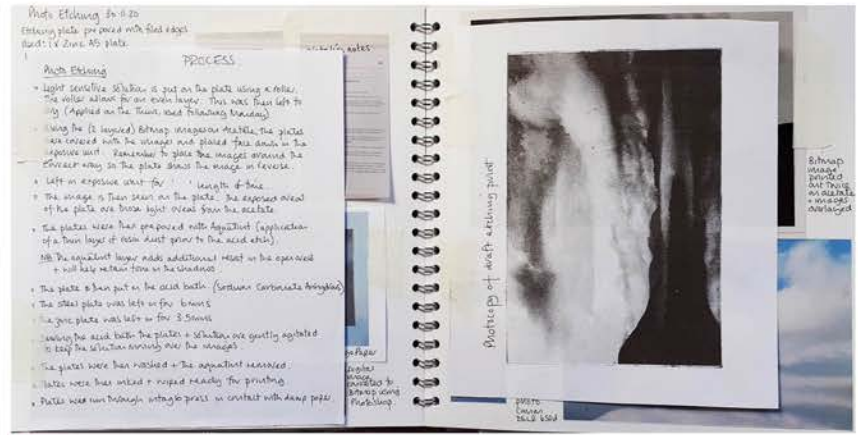 Photo Etching 30.11.20
Etching plate prepared with filed edges
Used: 1x Zinc A5 plate
PROCESS
Photo Etching
• Light sensitive solution is put on the plate using a roller.
The roller allows for an even layer. This was then left to
dry (Applied on the Thurs, used following Monday)
Using the (2 layered) Bitmap images on Acetate, the plates
were covered with the images and placed face down in the
exposure unit. Remember to place the images around the
correct way so the plate draws the image in reverse.
• Left in exposure unit for length of time.
• The image is then seen on the plate. The exposed areas
of the plate are those light areas from the acetate
• The plates were then prepared with Aquatint (application
of a thin layer of rosin dust prior to the acid etch).
NB The aquatint layer adds additional resist in the open areas
+ will help retain tone in the shadows.
• The plate is then put in the acid bath. (Sodium Carbonate
• The steel plate was left in for 6 mins
The zinc plate was left in for 3.5 mins
During the acid bath the plates + solution are gently agitated
to keep the solution moving over the images.
• The plates were then washed + the aquatint removed.
Plates were then inked + wiped ready for printing
• Plates were run through intaglio press in contact with damp paper.
notes
Paper
Digital
image
converted to
Bitmap using
Photoshop.
Photocopy of draft etching print
Bitmap
image
printed
out twice
on acetate
+ images
overlayed
photo
Canon